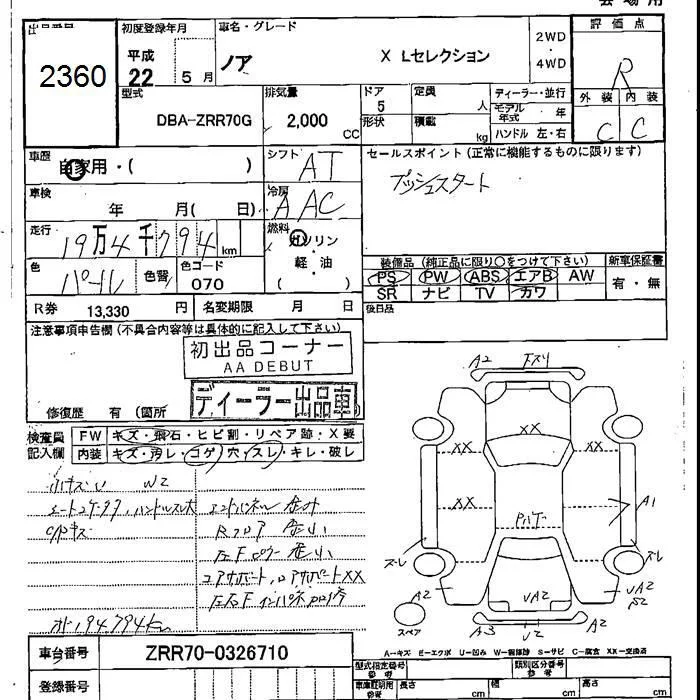 会場用
出品番号
2360
初度登録年月
平成
22 5 月
車名・グレード
ノア X Lセレクション
2WD
・
4WD
評価点
R
外装 内装
C C
型式
DBA-ZRR70G
排気量
2,000 CC
ドア
5
形状
定員 人
積載 kg
ディーラー・並行
モデル年式 年
ハンドル 左・右
車歴
自家用・( )
シフト
AT
セールスポイント(正常に機能するものに限ります)
プッシュスタート
車検
年 月( 日)
冷房
AAC
走行
19万4千794 km
燃料
ガソリン
・
軽・油
( )
色
パール
色替
色コード
070
装備品(純正品に限り○をつけて下さい)
PS PW ABS エアB AW
SR ナビ TV カワ
新車保証書
有・無
R券 13,330 円
名変期限 月 日
後日品
注意事項申告欄(不具合内容等は具体的に記入して下さい)
初出品コーナー
AA DEBUT
ディーラー出品車
修復歴 有 (箇所
検査員記入欄
FW キズ・飛石・ヒビ割・リペア跡・X要
内装 キズ・汚レ・コゲ・穴・スレ・キレ・破レ
小キズ W2
エンドパネル
Rフロア
コアサポート、ロアサポートXX
194,794km
A2
XX
XX
XX
A1
A2
UA2
UA2
A3
A2
スペア
A-キズ E-エクボ U-凹み W-補修跡 S-サビ C-腐食 XX-交換済
車台番号 ZRR70-0326710
登録番号
型式指定番号
参考
類別区分番号
参考
車庫証明用
参考
長さ cm
幅 cm
高さ cm